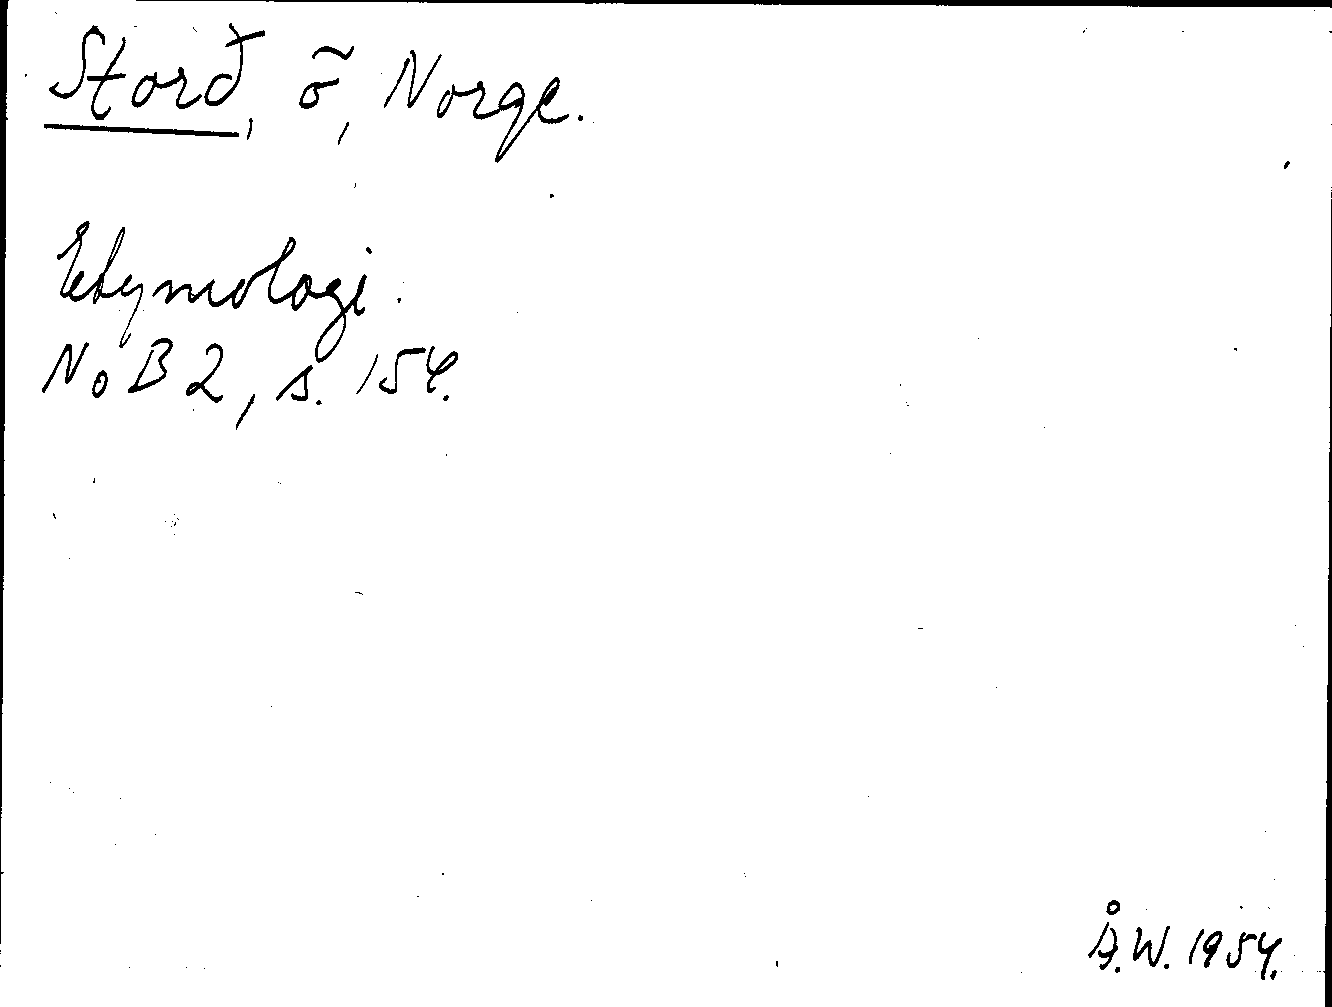 Storð, õ, Norge.
Etymologi.
NoB 2, s. 154.
Å.W. 1954.